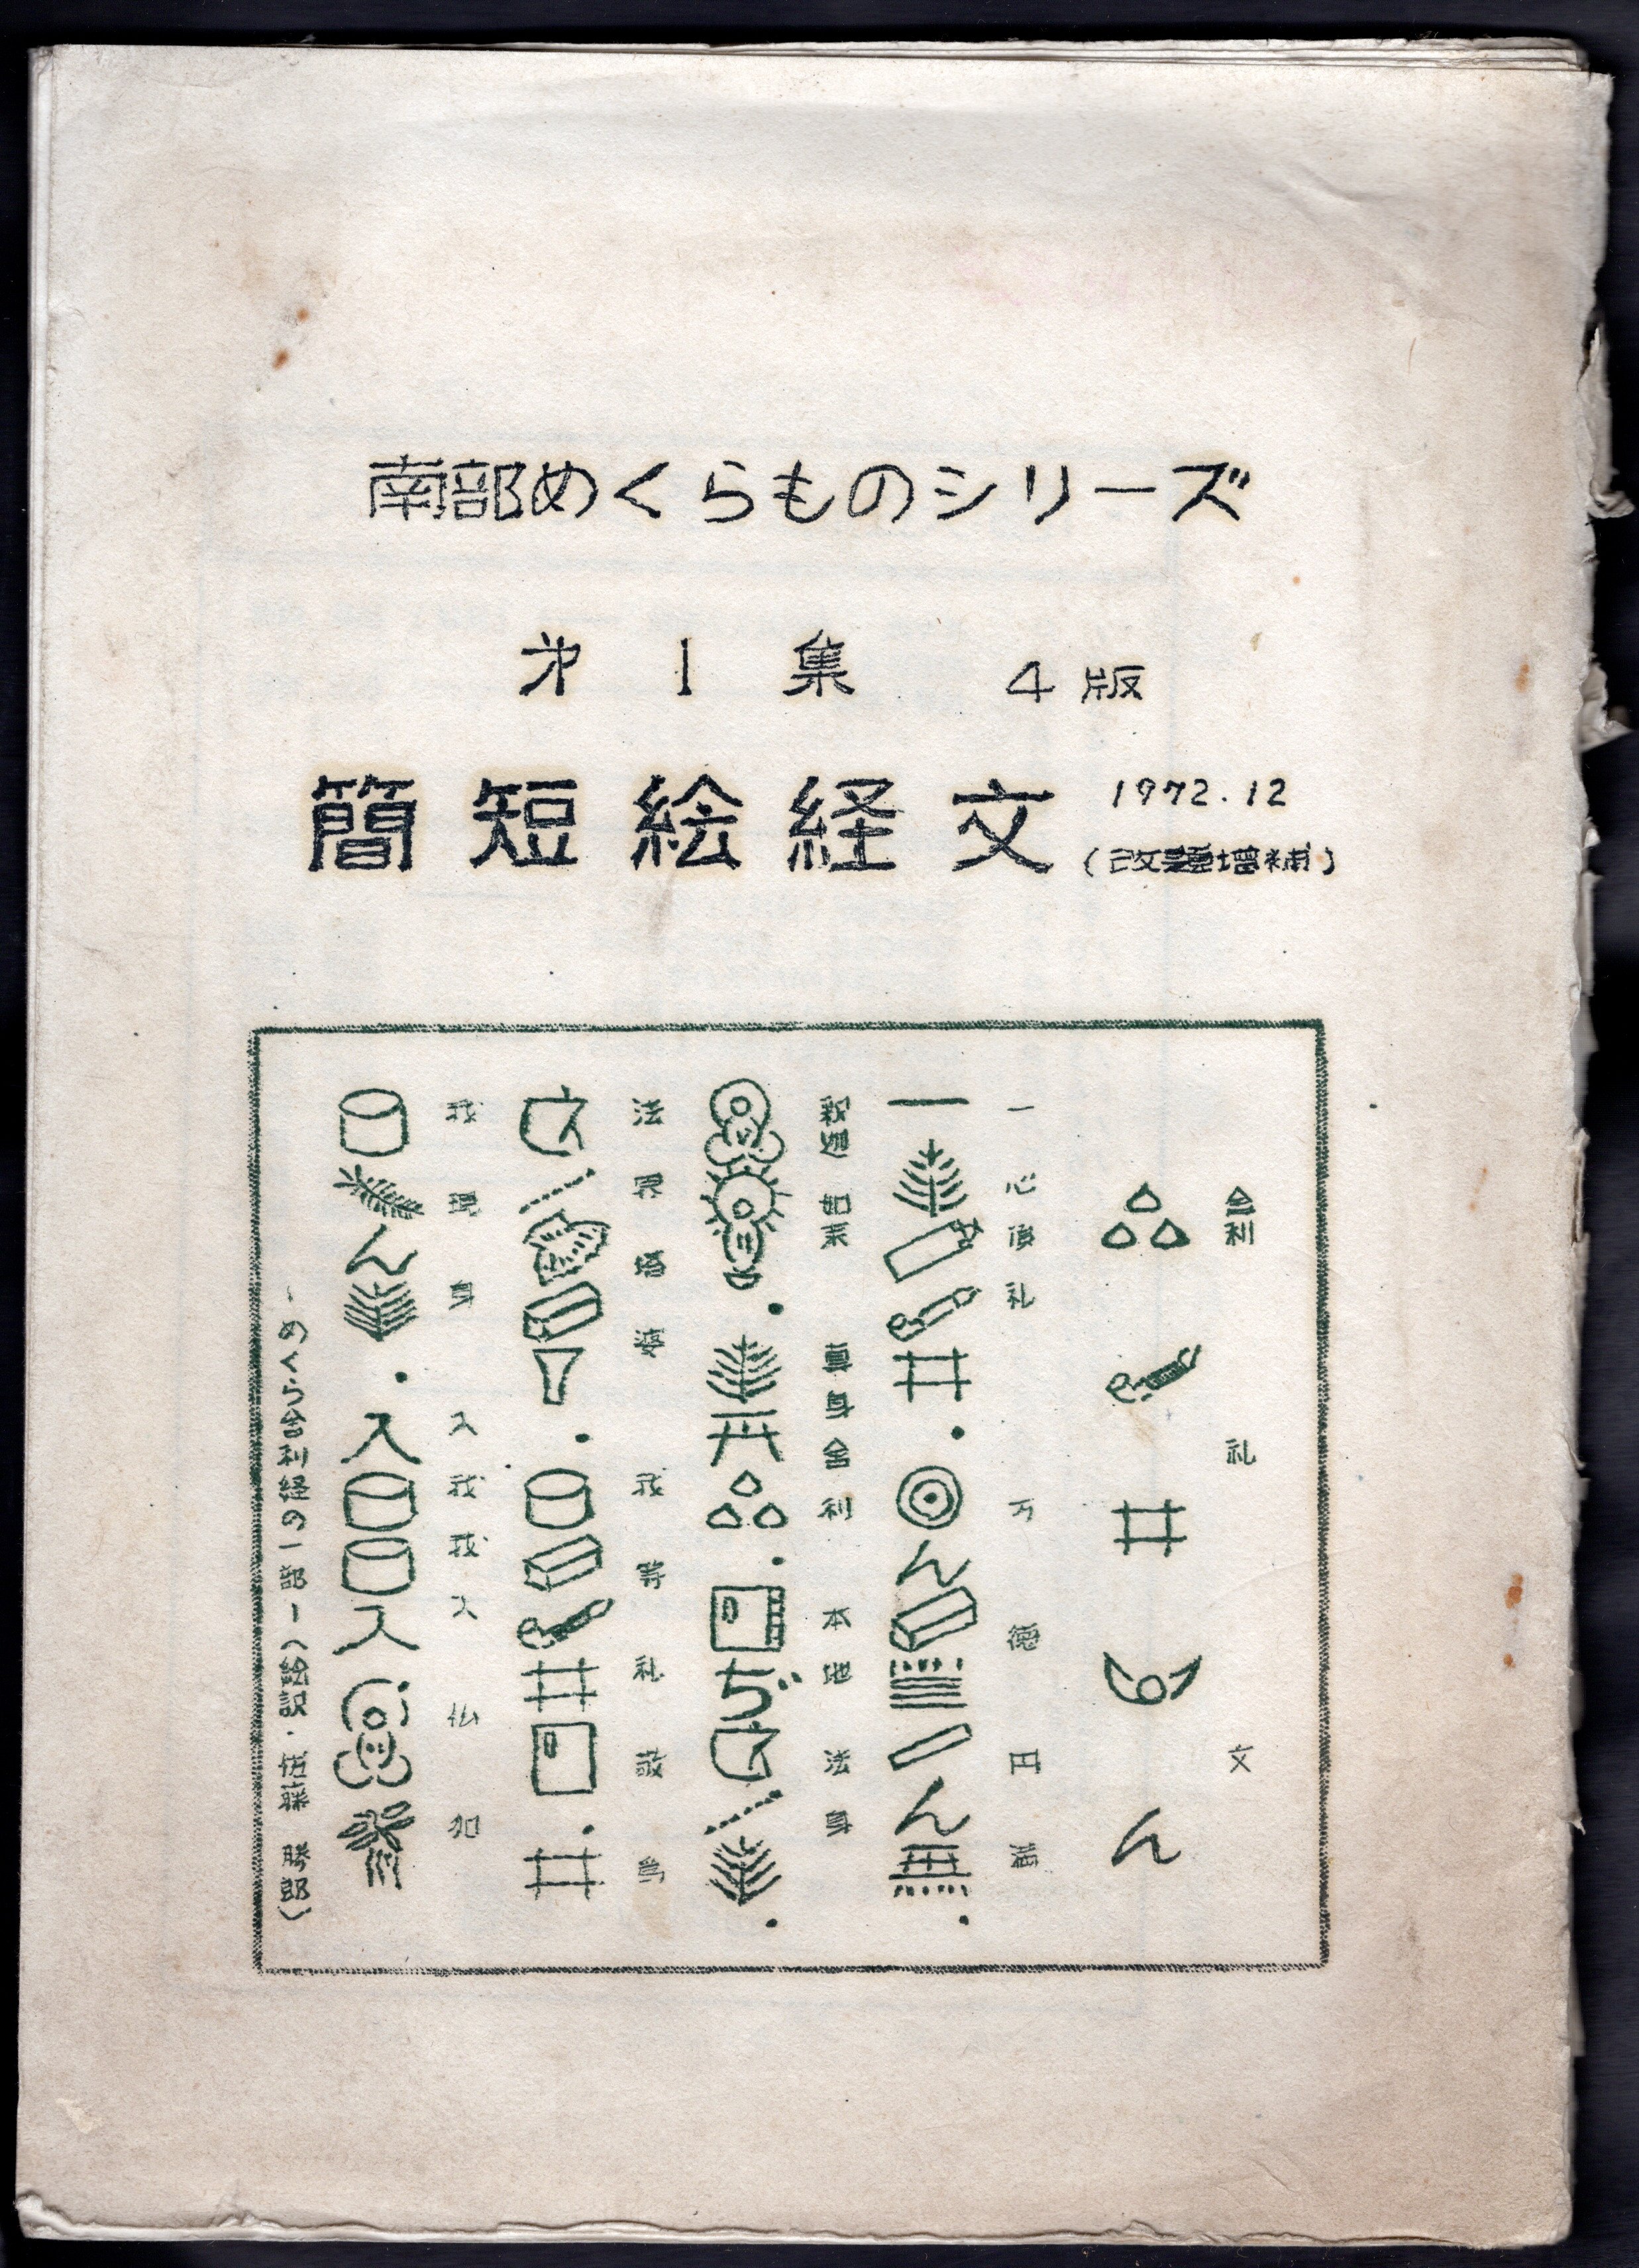 南部めくらものシリーズ
第1集 4版
簡短絵経文 1972.12
(改題増補)
舎利 礼 文
一心頂礼 万徳円満
釈迦如来 真身舎利 本地法身
法界塔婆 我等礼敬 為
我現身 入我我入 仏加
ーめくら舎利経の一部ー(絵訳・佐藤勝郎)